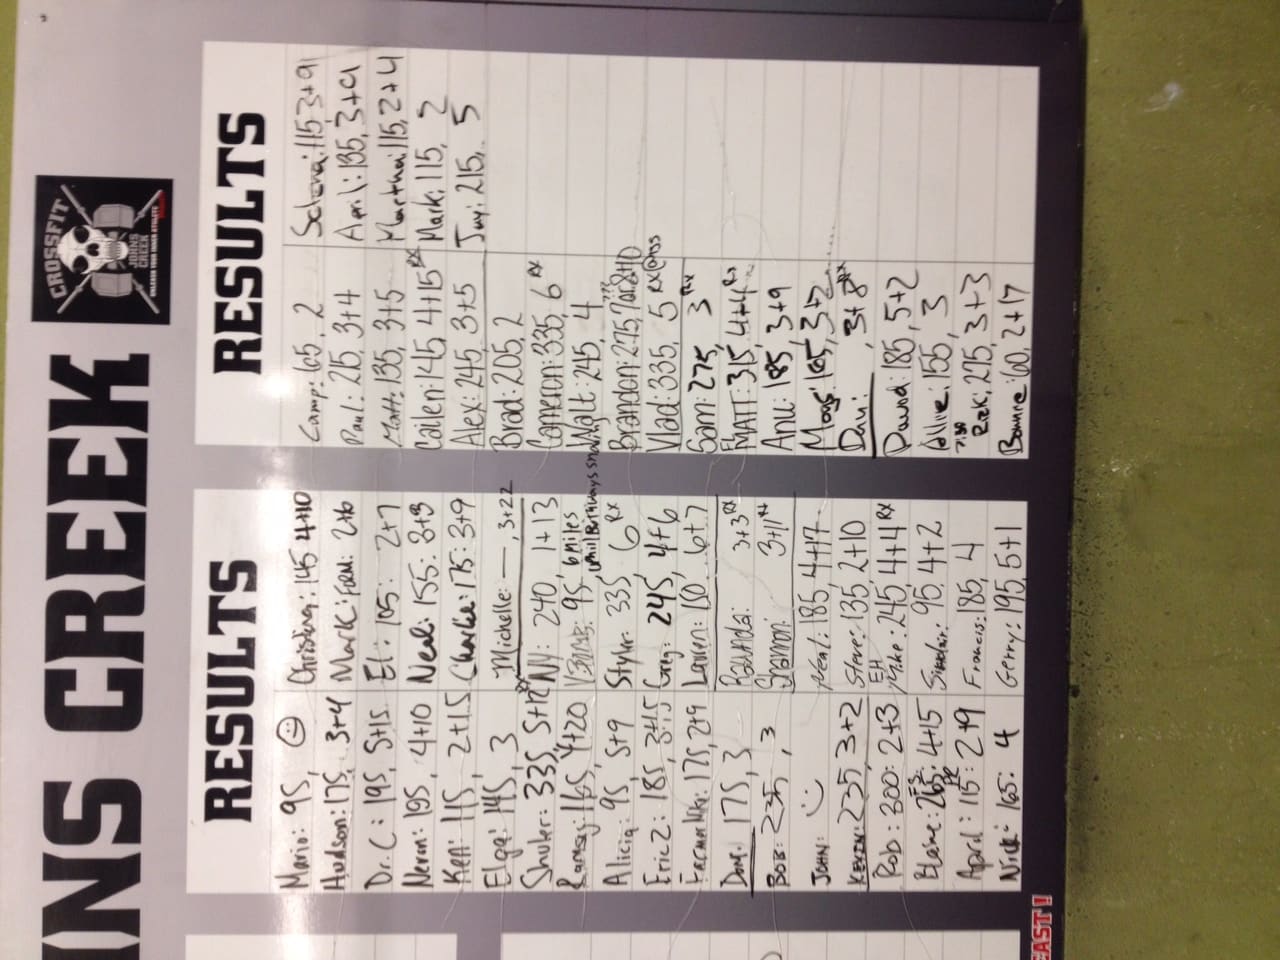 INS CREEK
CROSSFIT
JOHNS
CREEK
UNLEASH YOUR INNER ATHLETE
RESULTS
Mario: 95, ☺
Hudson: 175, 3+4
Dr. C: 195, 5+15
Neron: 195, 4+10
Ken: 115, 2+15
Elga: 145, 3
Shuler: 335, 5+12 RX
Ramsey: 165, 4+20
Alicia: 95, 5+9
Eric Z: 185, 3+15
175, 2+9
Dan: 175, 3
BOB: 235, 3
JOHN: ☺
KEVIN: 235, 3+2
ROD: 300: 2+3
Blaine: 265: 4+15
April: 115: 2+9
Nick: 165: 4
Christina: 145 4+10
Mark: FORM: 2+6
El: 105: 2+7
Neal: 155: 3+3
Charlie: 175: 3+9
Michelle: — , 3+22
NN: 240, 1+13
95, 6 miles
Stylr: 335, 6 RX
Greg: 245, 4+6
Lauren: 110, 6+7
3+3 RX
Shannon: 3+11 RX
Neal: 185, 4+17
Steve: 135 2+10
EH
Mike: 245, 4+4 RX
Sinclair: 95 4+2
Francis: 185, 4
Gerry: 195, 5+1
RESULTS
Camp: 165, 2
Paul: 215, 3+4
Matt: 135, 3+5
Cailen: 145, 4+15 RX
Alex: 245, 3+5
Brad: 205, 2
Cameron: 335, 6 RX
Walt: 245, 4
Brandon: 275, 7 or 8+10
Vlad: 335, 5 RX
Sam: 275, 3 RX
EL
MATT: 315, 4+4 RX
Anu: 185, 3+9
Mogs: 165, 3+2
Dan: , 3+8 RX
David: 185, 5+2
Allie: 155, 3
7:30
Rick: 275, 3+3
Bonnie: 60, 2+17
Selena: 115 3+9
April: 135, 3+9
Martha: 115, 2+4
Mark: 115, 2
Jay: 215, 5
EAST!